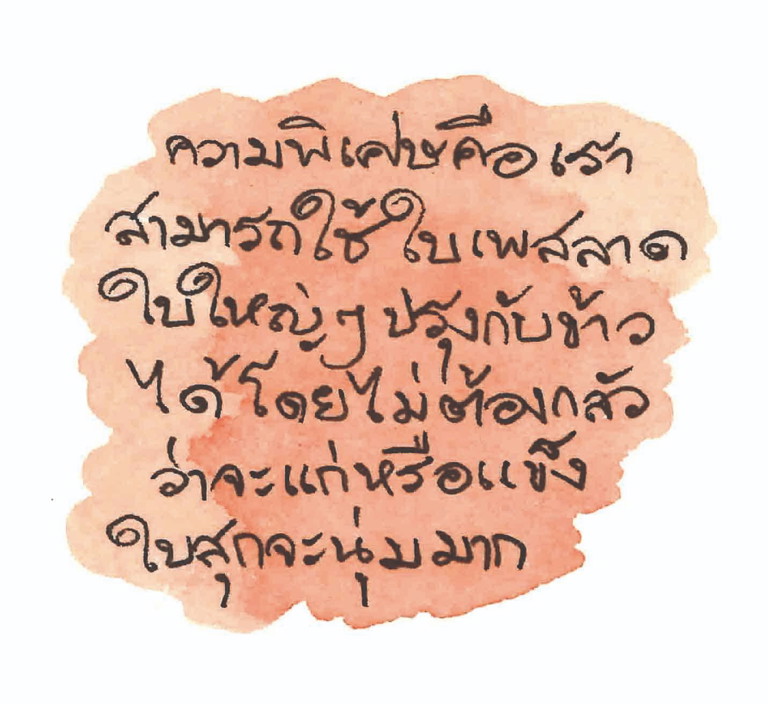 ความพิเศษคือ เรา
สามารถใช้ ใบเพสลาด
ใบใหญ่ๆ ปรุงกับข้าว
ได้ โดยไม่ต้องกลัว
ว่าจะแก่หรือแข็ง
ใบสุกจะนุ่มมาก